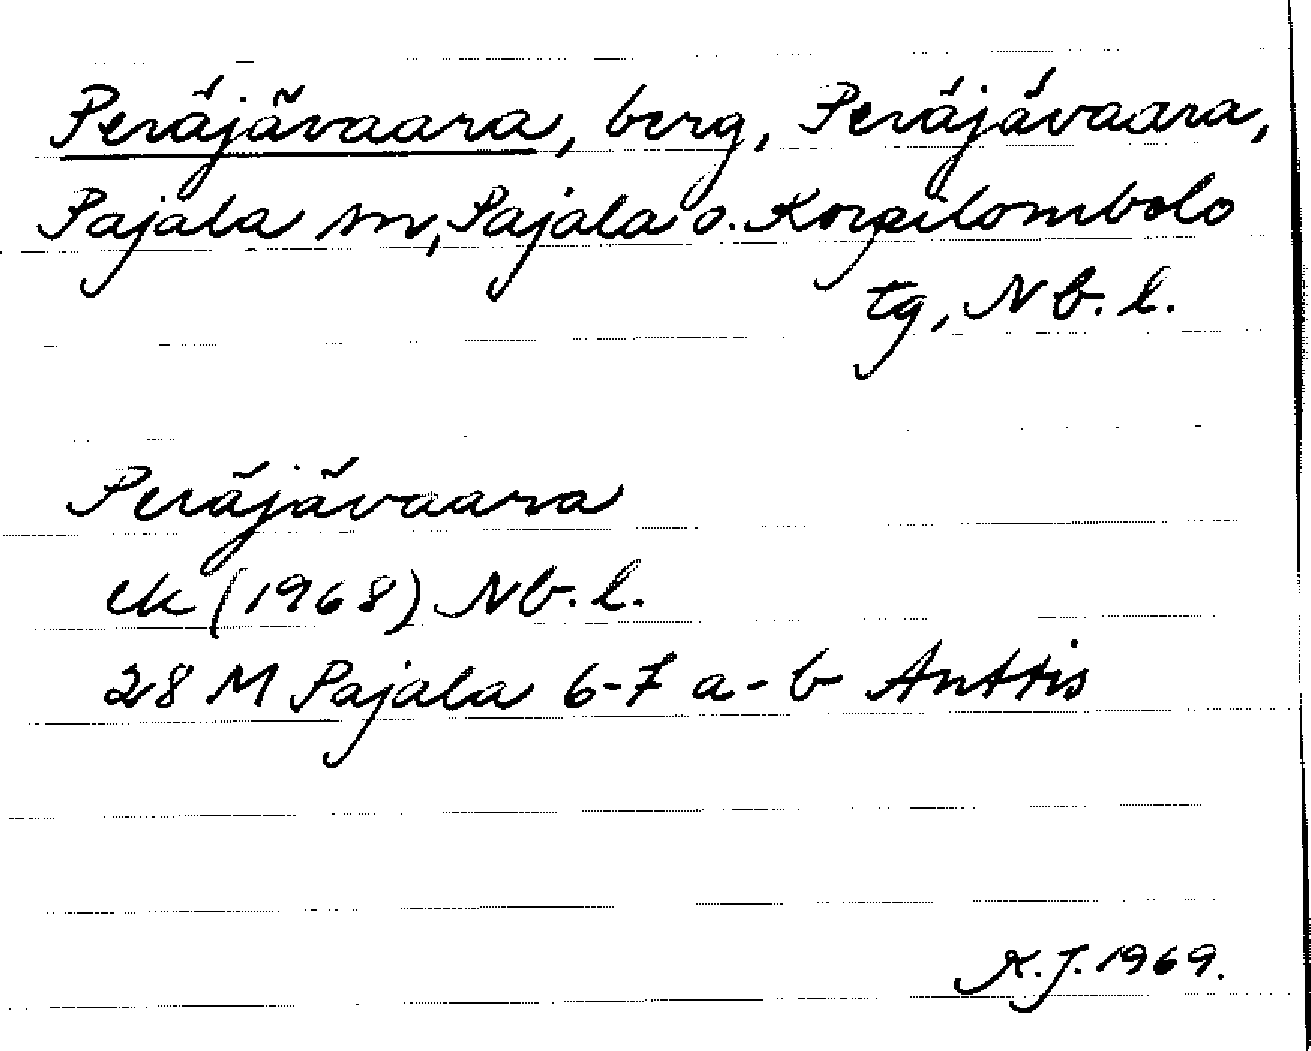 Peräjävaara, berg, Peräjävaara,
Pajala sn, Pajala o. Korpilombolo
tg, Nb. l.
Peräjävaara
ek (1968) Nb. l.
28 M Pajala 6-7 a-b Anttis
K.J. 1969.